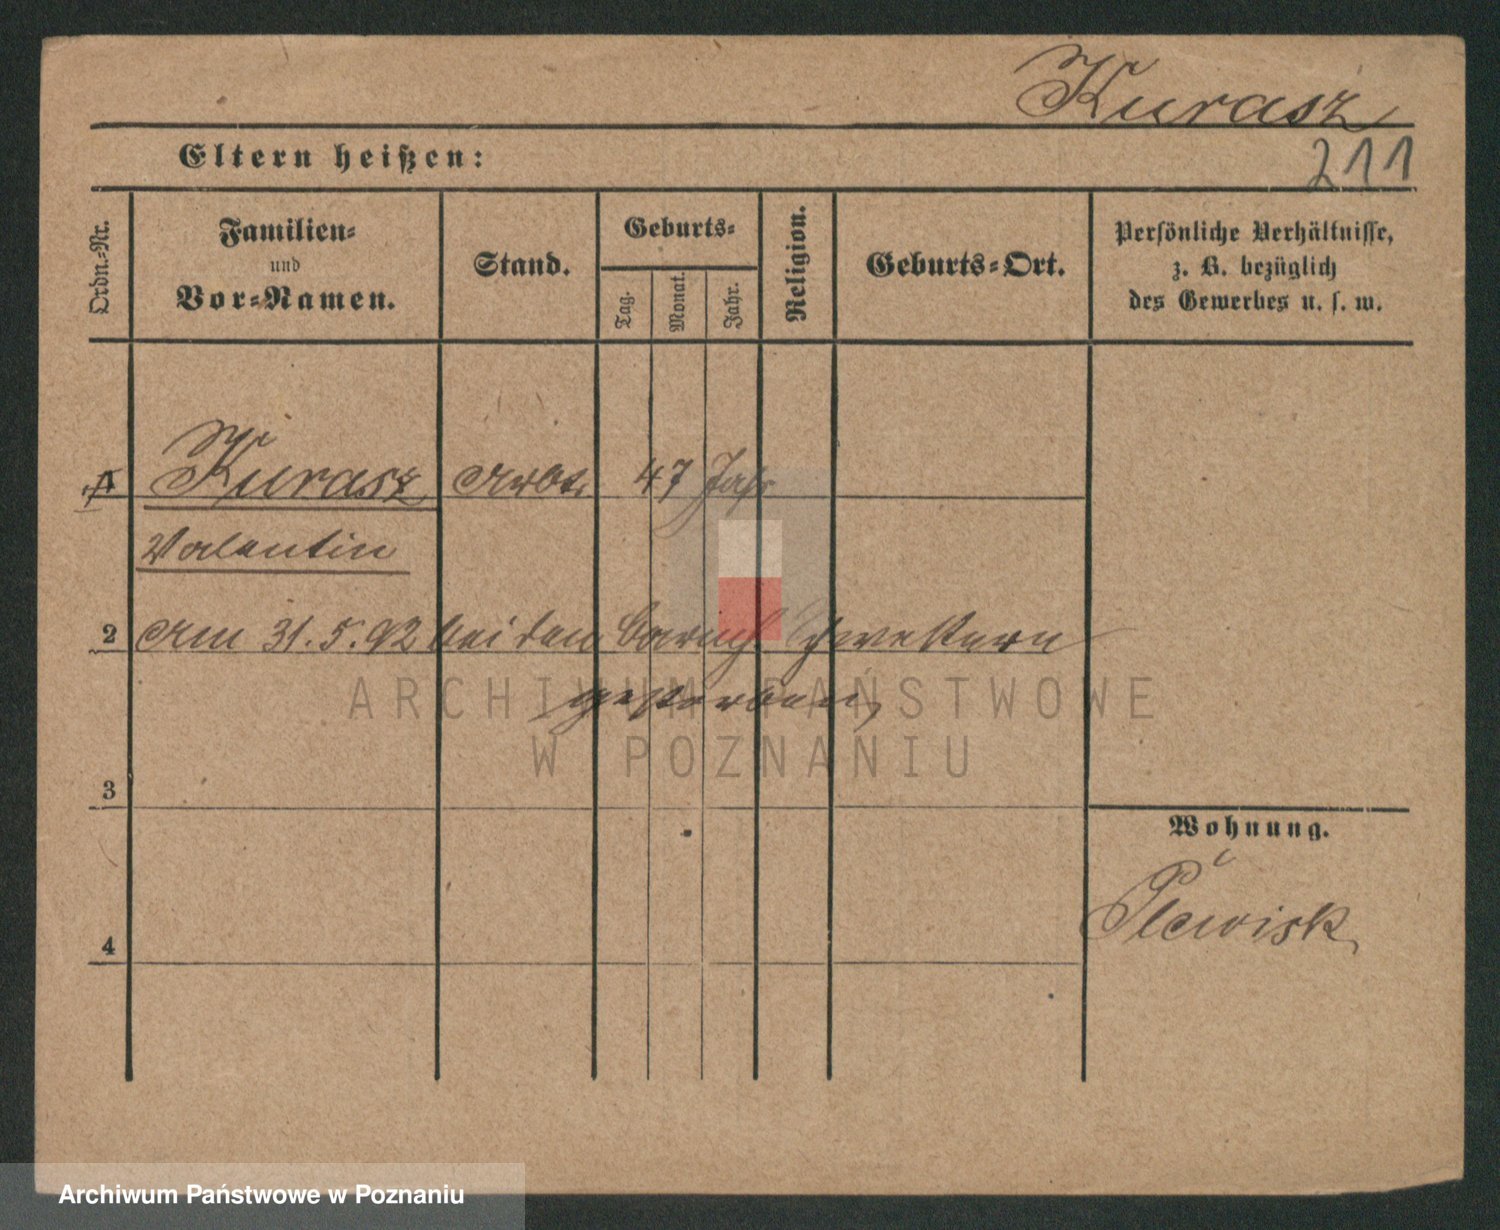 Kurasz
Eltern heißen:
211
Ordn.-Nr.
Familien-
und
Vor-Namen.
Stand.
Geburts-
Tag.
Monat.
Jahr.
Religion.
Geburts-Ort.
Persönliche Verhältnisse,
z. B. bezüglich
des Gewerbes u. s. w.
1 Kurasz Arbt. 47 Jahr
Valentin
2 Am 31.5.92 bei den barmh. Schwestern
gestorben,
ARCHIWUM PAŃSTWOWE
W POZNANIU
3
Wohnung.
Plewisk
4
Archiwum Państwowe w Poznaniu